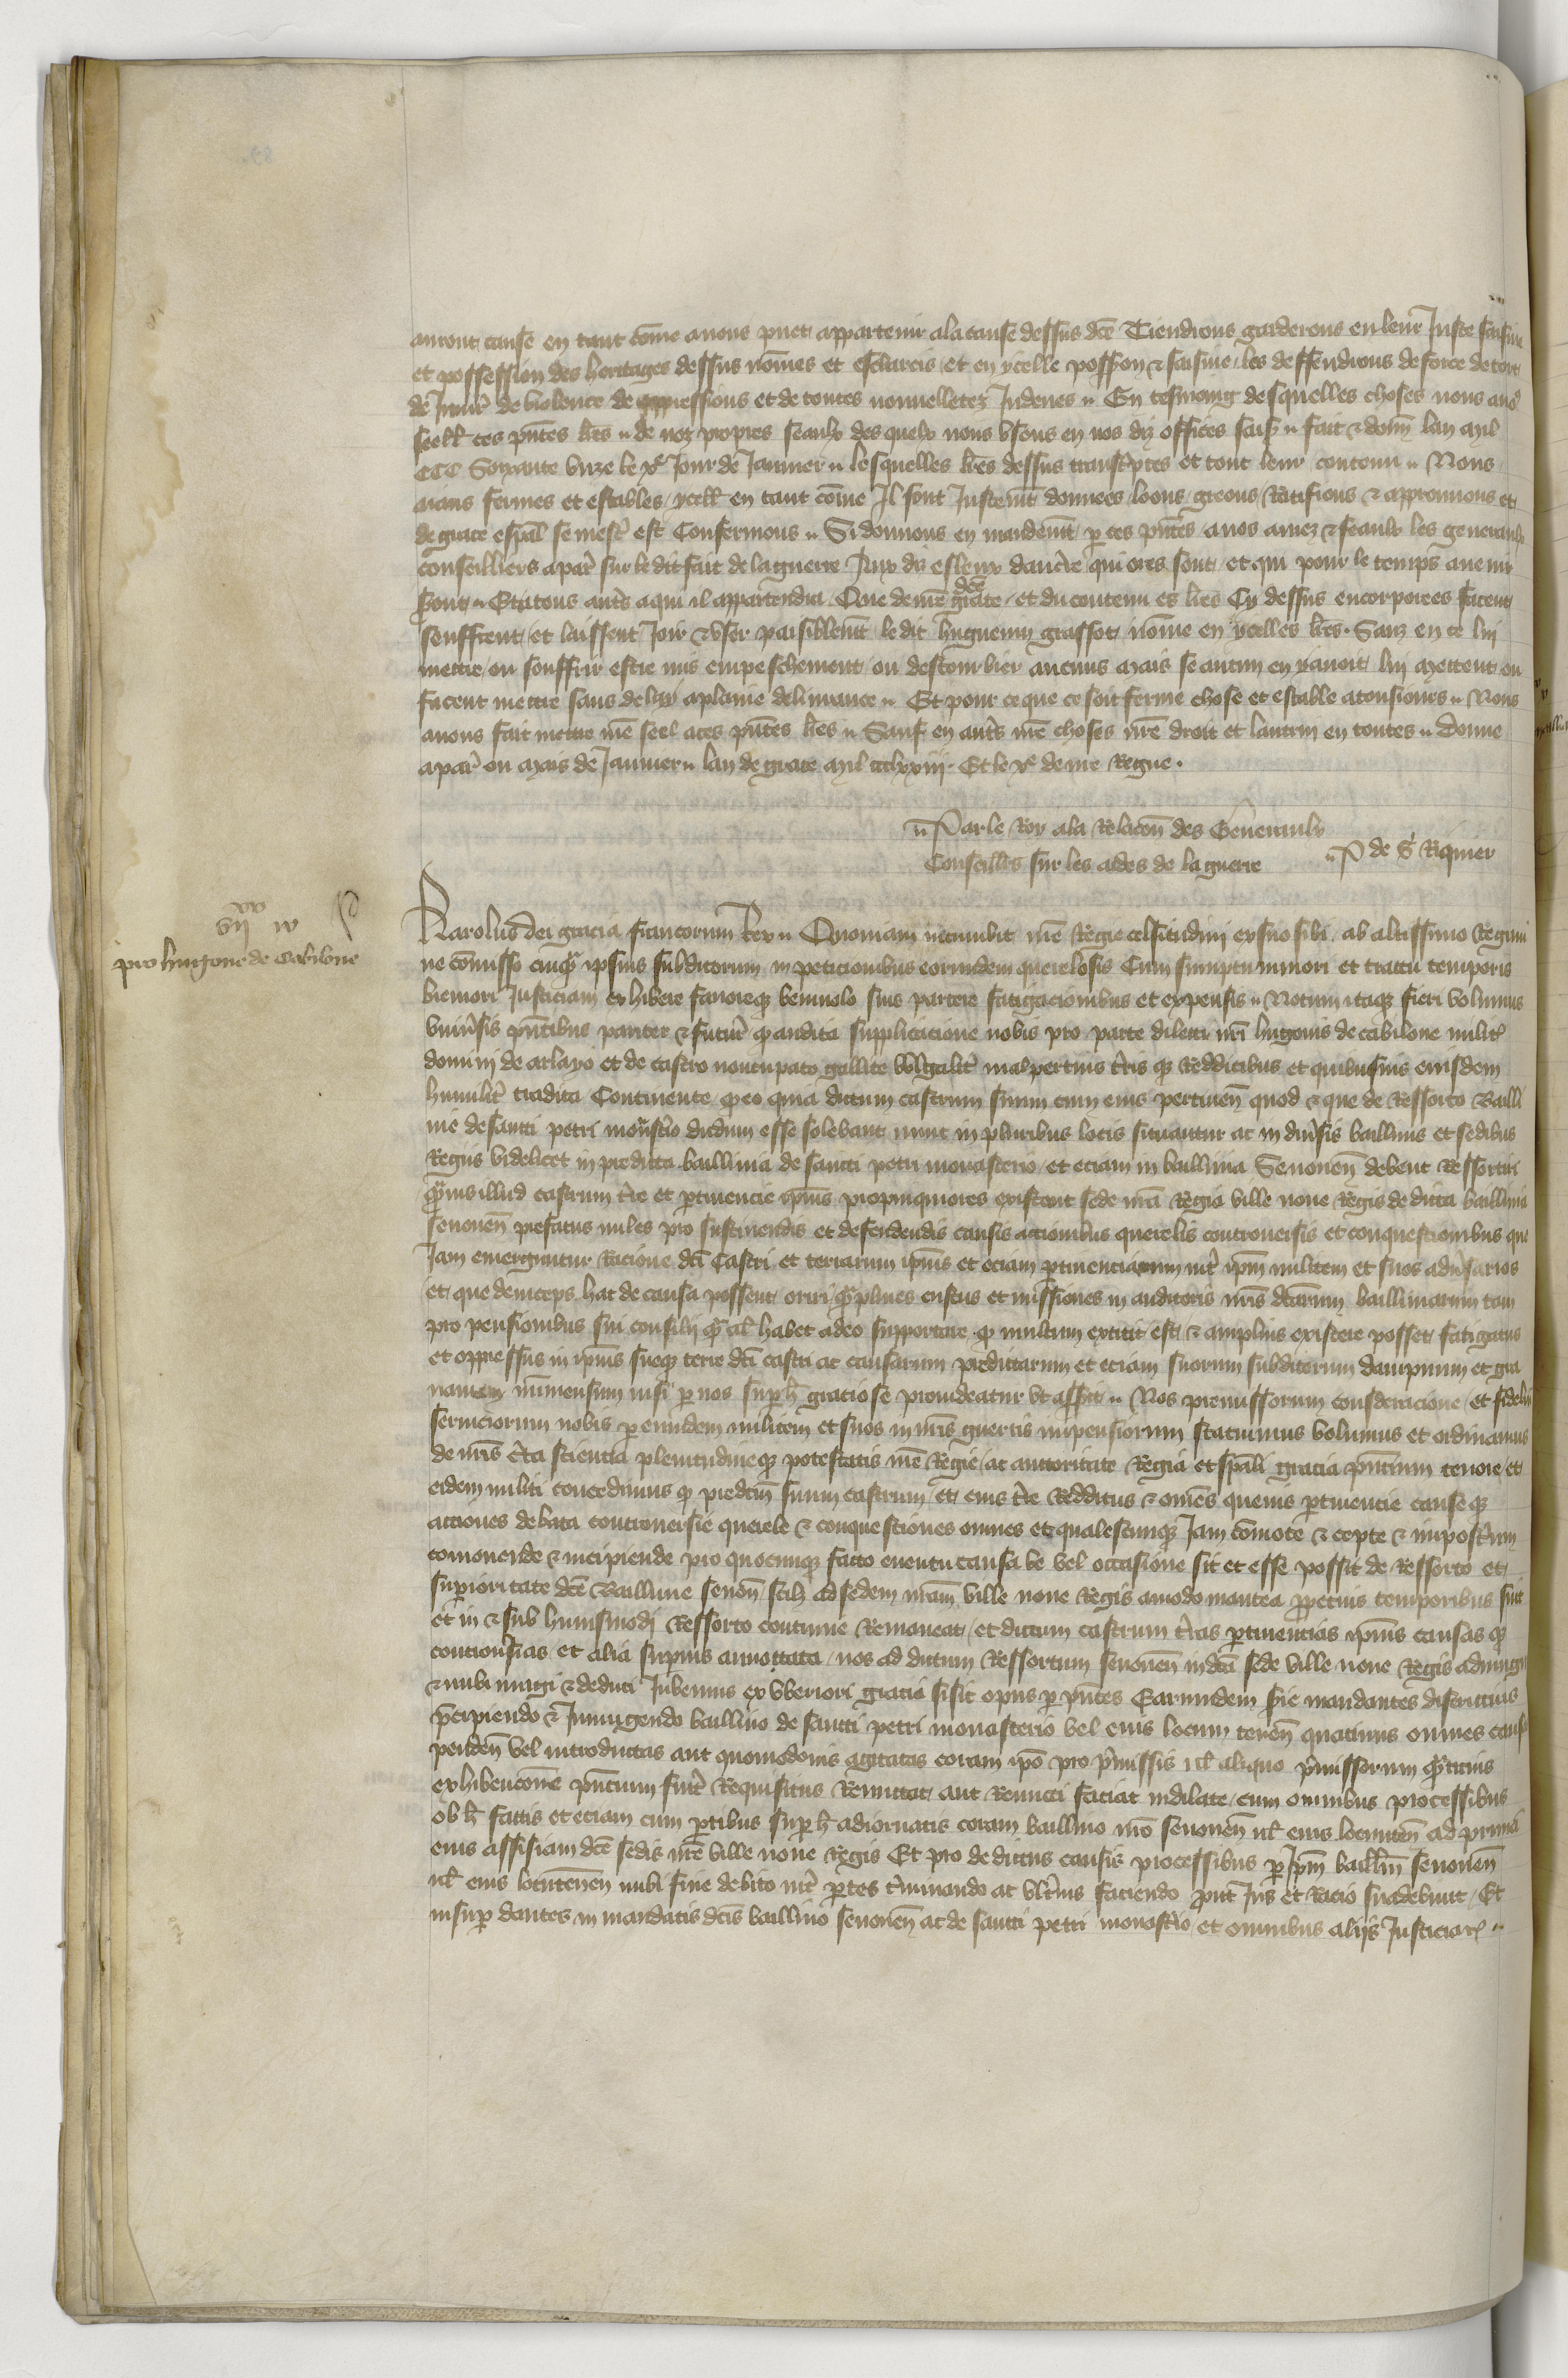 auront cause en tant come a nous puet appartenir a la cause dessus dce Tiendrons garderons en leur Juste saisine
et possession des heritages dessus nomes et esclarcis et en ycelle possion & saisine les deffendrons de force de tort
de Iniure de violence de oppressions et de toutes nouvelletez Indeues En tesmoing desquelles choses nous avons
seell ces pntes lres de noz propres seaulx des quelx nous usons en nos diz offices fais fait & donn lan mil
CCC Soixante unze le xe Jour de Janvier lesquelles lres dessus transcriptes et tout leur contenu Nous
aians fermes et estables ycell en tant come Il sont Justemt donnees loons greons Ratifions & approuvons et
de grace espal se mest est Confermons Si donnons en mandemt p ces pntes a nos amez & feaulx les generaulx
conseilliers a par sur le dit fait de la guerre Aux diz esleux daucre qui ores sont et qui pour le temps avenir
seront Et a tous auts a qui il appartendra Que de nre dce grace et du contenu es lres Cy dessus encorporees facent
seuffrent et laissent Joir & user paisiblemt le dit huguenin grassot nome en ycelles lres Sanz en ce lui
mettre ou souffrir estre mis empeschement ou destourbier aucuns Mais se aucun en y avoit lui mettent ou
facent mettre sans delay a plaine delivrance Et pour ce que ce soit ferme chose et estable a tousiours Nous
avons fait mettre nre seel a ces pntes lres Sauf en auts nre choses nre droit et lautruy en toutes Donne
a par ou mois de Janvier lan de grace mil ccclxxiij Et le xe de nre Regne
Par le Roy a la Relacon des Generaulx
Conseilles sur les aides de la guerre P de St Riquier
vijxx iv
pro hugone de Cabilone
Karolus dei gracia francorum Rex Quoniam incumbit nre Regie celsitudini ex suo sibi ab altissimo Regimi
ne comisso cuiq ipsius subditorum in peticionibus eorumdem querelosis Cum sumptu minori et tractu temporis
breviori Justiciam exhibere favoreq benivolo suis parcere fatigacionibus et expensis Notum itaq fieri volumus
univsis pntibus pariter & futur q audita supplicacione nobis pro parte dilecti nri hugonis de cabilone milit
domini de arlayo et de castro nuncupato gallice vulgalit malpertuis tris q Redditibus et quibusvis eiusdem
humilit tradita Continente q eo quia dictum castrum suum cum eius pertinen quod & que de Ressorto Bailli
vie de sancti petri monstio dudum esse solebant nunc in pluribus locis situantur ac in divsis bailliviis et sedibus
Regiis videlicet in predicta baillivia de sancti petri monasterio et eciam in baillivia Senonen debent Ressortiri
qvis illud castrum tre et ptinencie ipius propinquiores existant sede nra Regia ville nove Regis de dicta baillivia
senonen prefatus miles pro sustinendis et defendendis causis actionibus querelis controversis et conquestionibus que
Jam emerguntur Racione dci Castri et terrarum ipius et eciam ptinenciarum int ipm militem et suos advsarios
et que deinceps hac de causa possent oriri q plures custus et missiones in auditoris nris dcarum bailliviarum tam
pro pensionibus sui consilij q al habet adeo supportare q multum extitit est & amplius existere posset fatigatus
et oppressus in ipius sueq terre dci castri ac causarum predictarum et eciam suorum subditorum dampnum et gra
vamen immensum nisi p nos sup h graciose provideatur ut asserit Nos premissorum consideracione et fidelium
serviciorum nobis p eumdem militem et suos in nris guerris impensorum statuimus volumus et ordinamus
de nris cta sciencia plenitudineq potestatis nre Regie ac auctoritate Regia et spali gracia pntium tenore et
eidem militi concedimus q predcm suum castrum et eius tre Redditus & omes quevis ptinencie cause q
acciones debata controversie querele & conquestiones omnes et qualescumq Jam comote & cepte & impostum
comovende & incipiende pro quocumq facto eventu causa ve vel occasione sit et esse possit de Ressorto et
supioritate dce Baillivie senon scilz ad sedem nram ville nove Regis amodo in antea ppetuis temporibus sint
et in & sub huiusmodi Ressorto continue Remaneat et dictum castrum tras ptinencias ipius causas q
controvsias et alia supius annottata nos ad dictum Ressortum senonen in dca sede ville nove Regis adiungi
& inibi iungi & deduci Jubemus ex uberiori gracia si sit opus p pntes Earumdem sie mandantes districtius
pcipiendo & Iniungendo baillivo de sancti petri monasterio vel eius locum tenen quatinus omnes causas
penden vel introductas aut quomodovis agitatas coram ipo pro pmissis vl aliquo pmissorum qtitius
exhibicone pntium fuit Requisitus Remittat aut Remitti faciat indilate cum omnibus processibus
ob h factis et eciam cum ptibus sup h adiornatis coram baillivo nro senonen vl eius locumten ad primam
eius assisiam dce sedis nre ville nove Regis Et pro dedictus causis processibus p ipm baillm senonen
vl eius locutenen inibi fine debito int ptes tminando ac ultius faciendo prut Jus et Racio suadebunt Et
insup dantes in mandatis dcis baillivo senonen ac de sancti petri monastio et omnibus alijs Justiciar